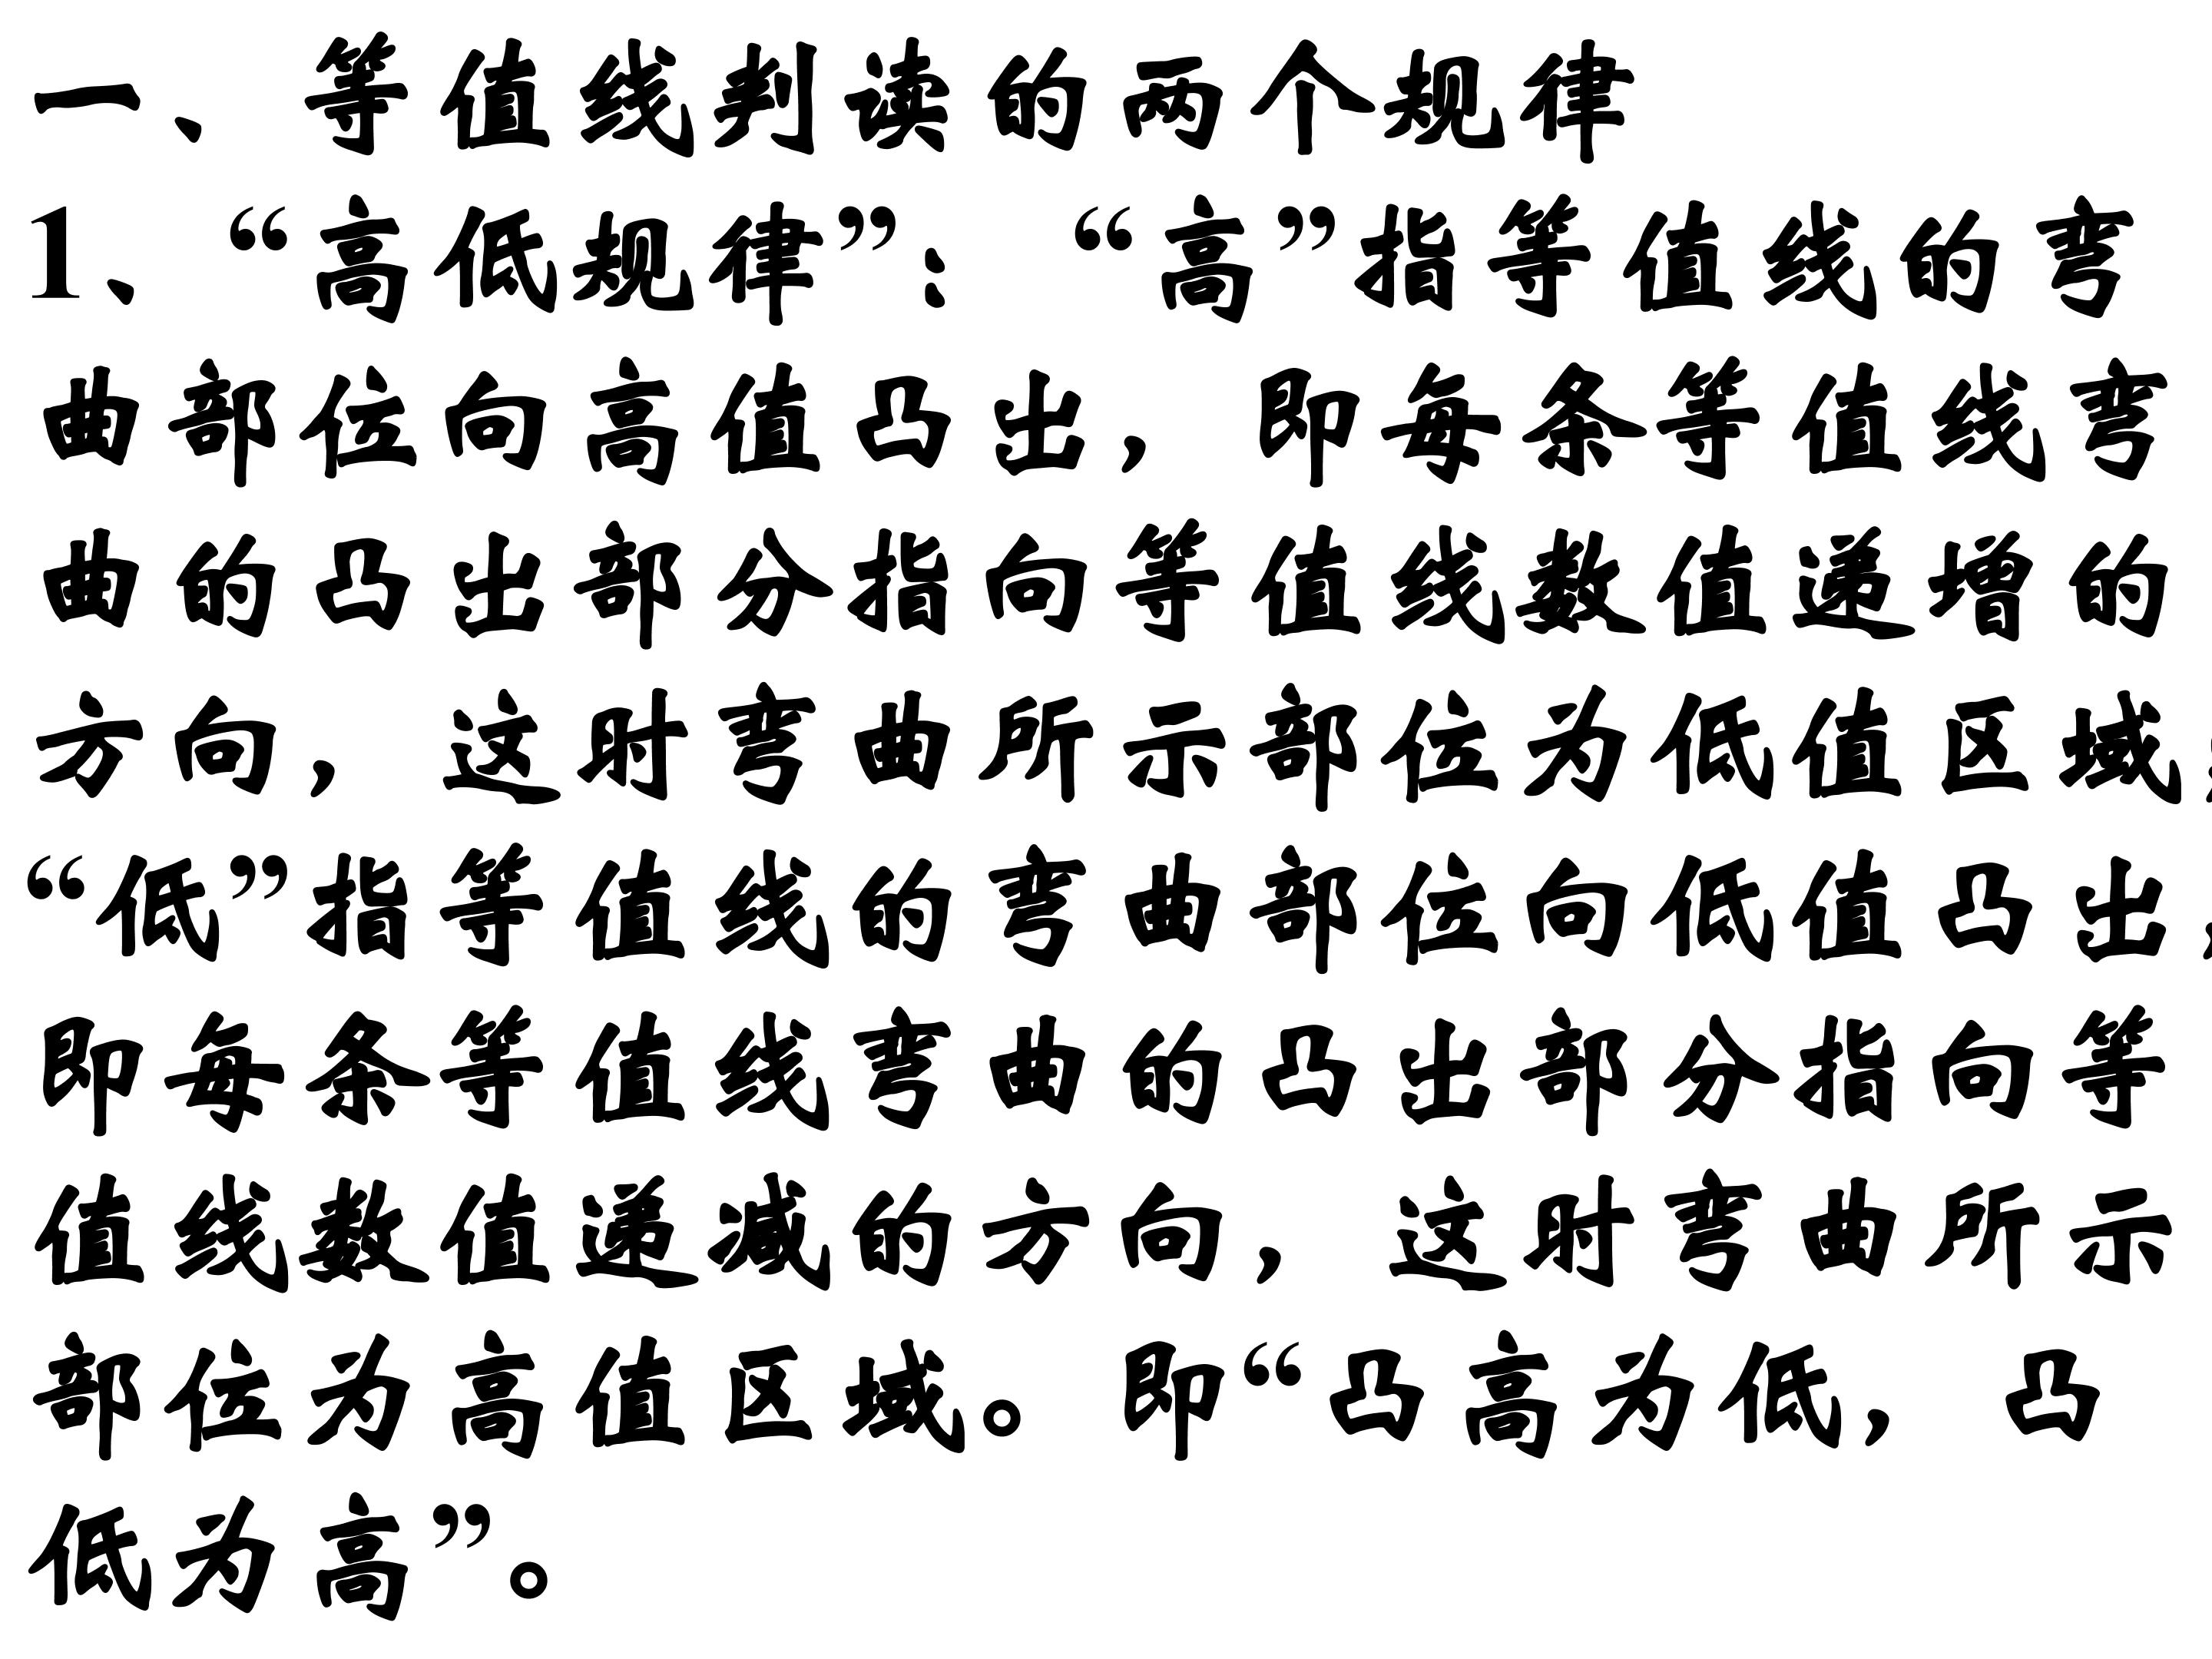 一、等值线判读的两个规律
1、“高低规律”：“高”指等值线的弯
曲部位向高值凸出，即每条等值线弯
曲的凸出部分指向等值线数值递增的
方向，这时弯曲所示部位为低值区域，
“低”指等值线的弯曲部位向低值凸出，
即每条等值线弯曲的凸出部分指向等
值线数值递减的方向，这时弯曲所示
部位为高值区域。即“凸高为低，凸
低为高”。